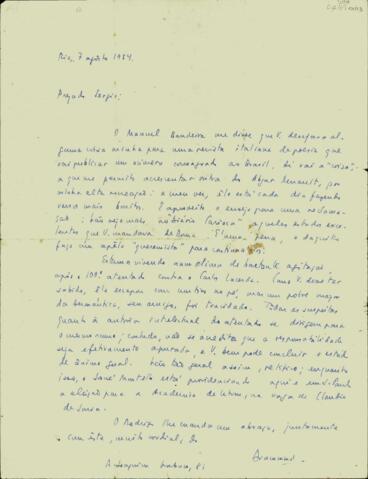 Rio, 7 agôsto 1954.
Prezado Sergio:
O Manuel Bandeira me disse que V. desejava al-
guma coisa minha para uma revista italiana de poesia que
vai publicar um número consagrado ao Brasil. Aí vai a "coisa",
a que me permito acrescentar outra do Abgar Renault, por
minha alta recreação: a meu ver, êle está cada dia fazendo
versos mais bonitos. E aproveito o ensejo para uma reclama-
ção: não vejo mais no Diário Carioca aqueles estudos exce-
lentes que V. mandava de Roma. É uma pena, e daqui lhe
faço um apêlo "queremista" para continuá-los.
Estamos vivendo num clima de bastante agitação,
após o atentado contra o Carlos Lacerda. Como V. deve ter
sabido, êle escapou com um tiro no pé, mas um pobre major
da Aeronáutica, seu amigo, foi trucidado. Todas as suspeitas
quanto à autoria intelectual do atentado se dirigem para
o mesmo rumo; contudo, não se acredita que a responsabilidade
seja efetivamente apurada, e V. bem pode concluir o estado
de ânimo geral. enquanto
isso, o José Montello está providenciando aqui
a eleição para a Academia de Letras, na vaga do Claudio
de Sousa.
O Rodrigo lhe manda um abraço, juntamente
com êste, muito cordial, do
Drummond.
R. Joaquim Nabuco, 81